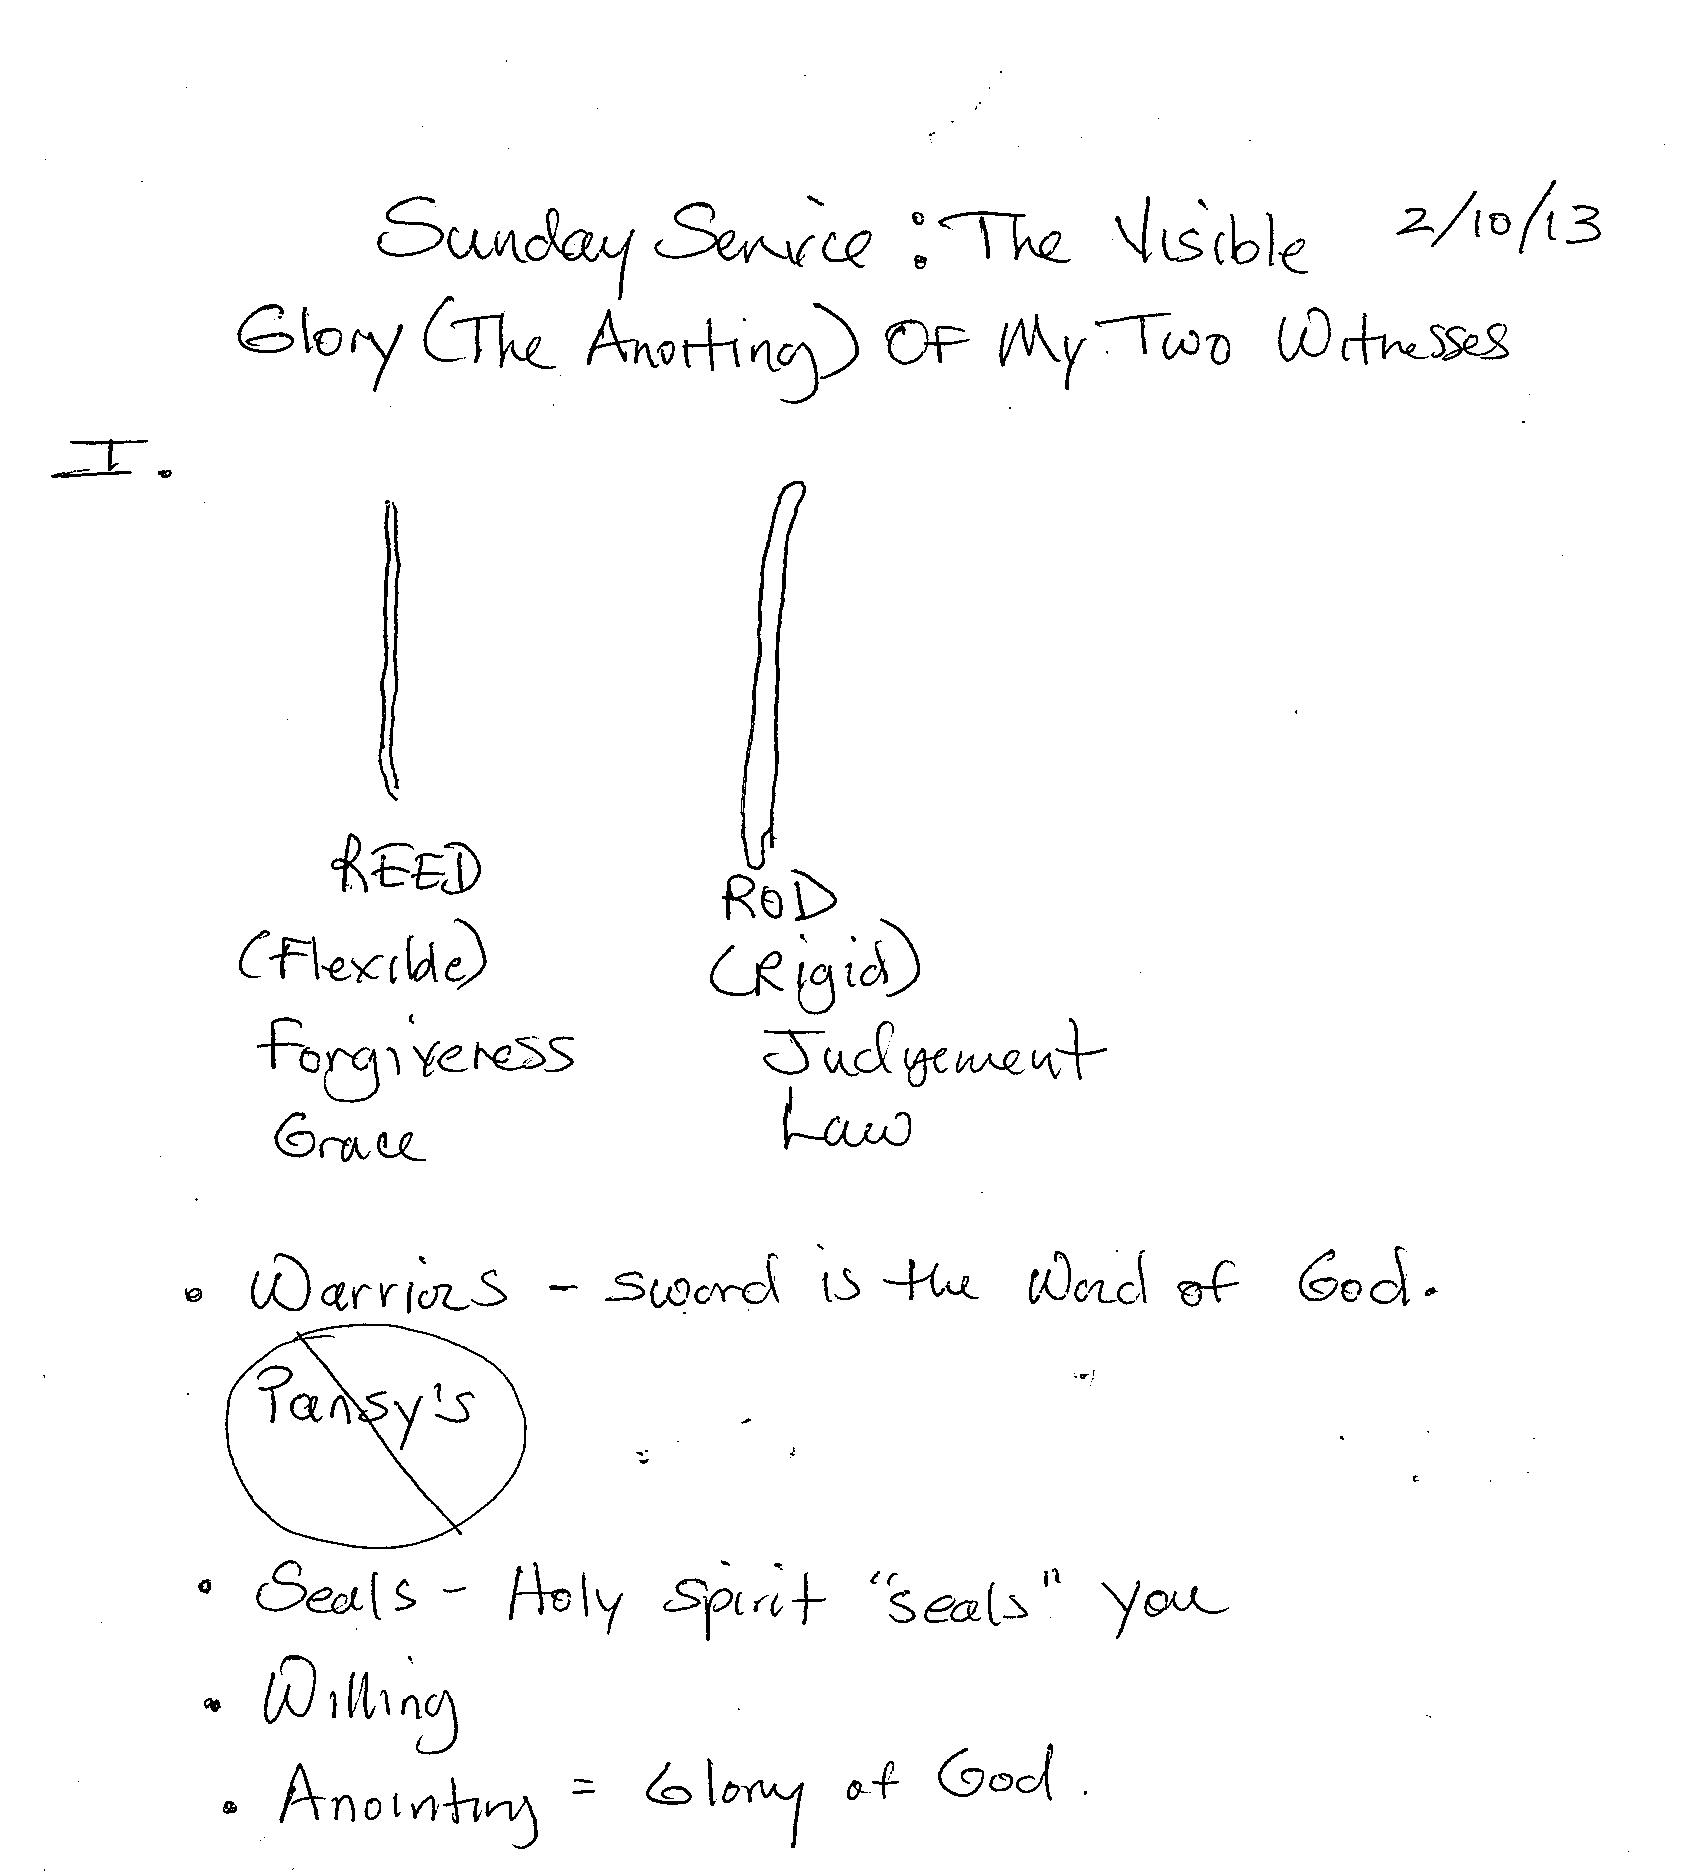 Sunday Service: The Visible 2/10/13
Glory (The Anointing) Of My Two Witnesses
I.
REED ROD
(Flexible) (Rigid)
Forgiveness Judgement
Grace Law
• Warriors - sword is the Word of God.
Pansy's
• Seals - Holy Spirit "seals" you
• Willing
• Anointing = Glory of God.